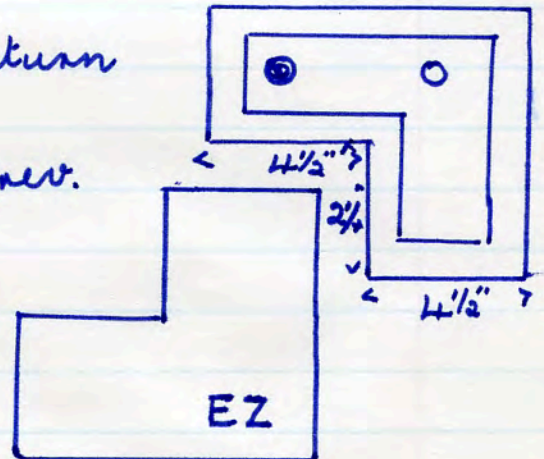 turn
rev.
4½"
2¼"
4½"
EZ